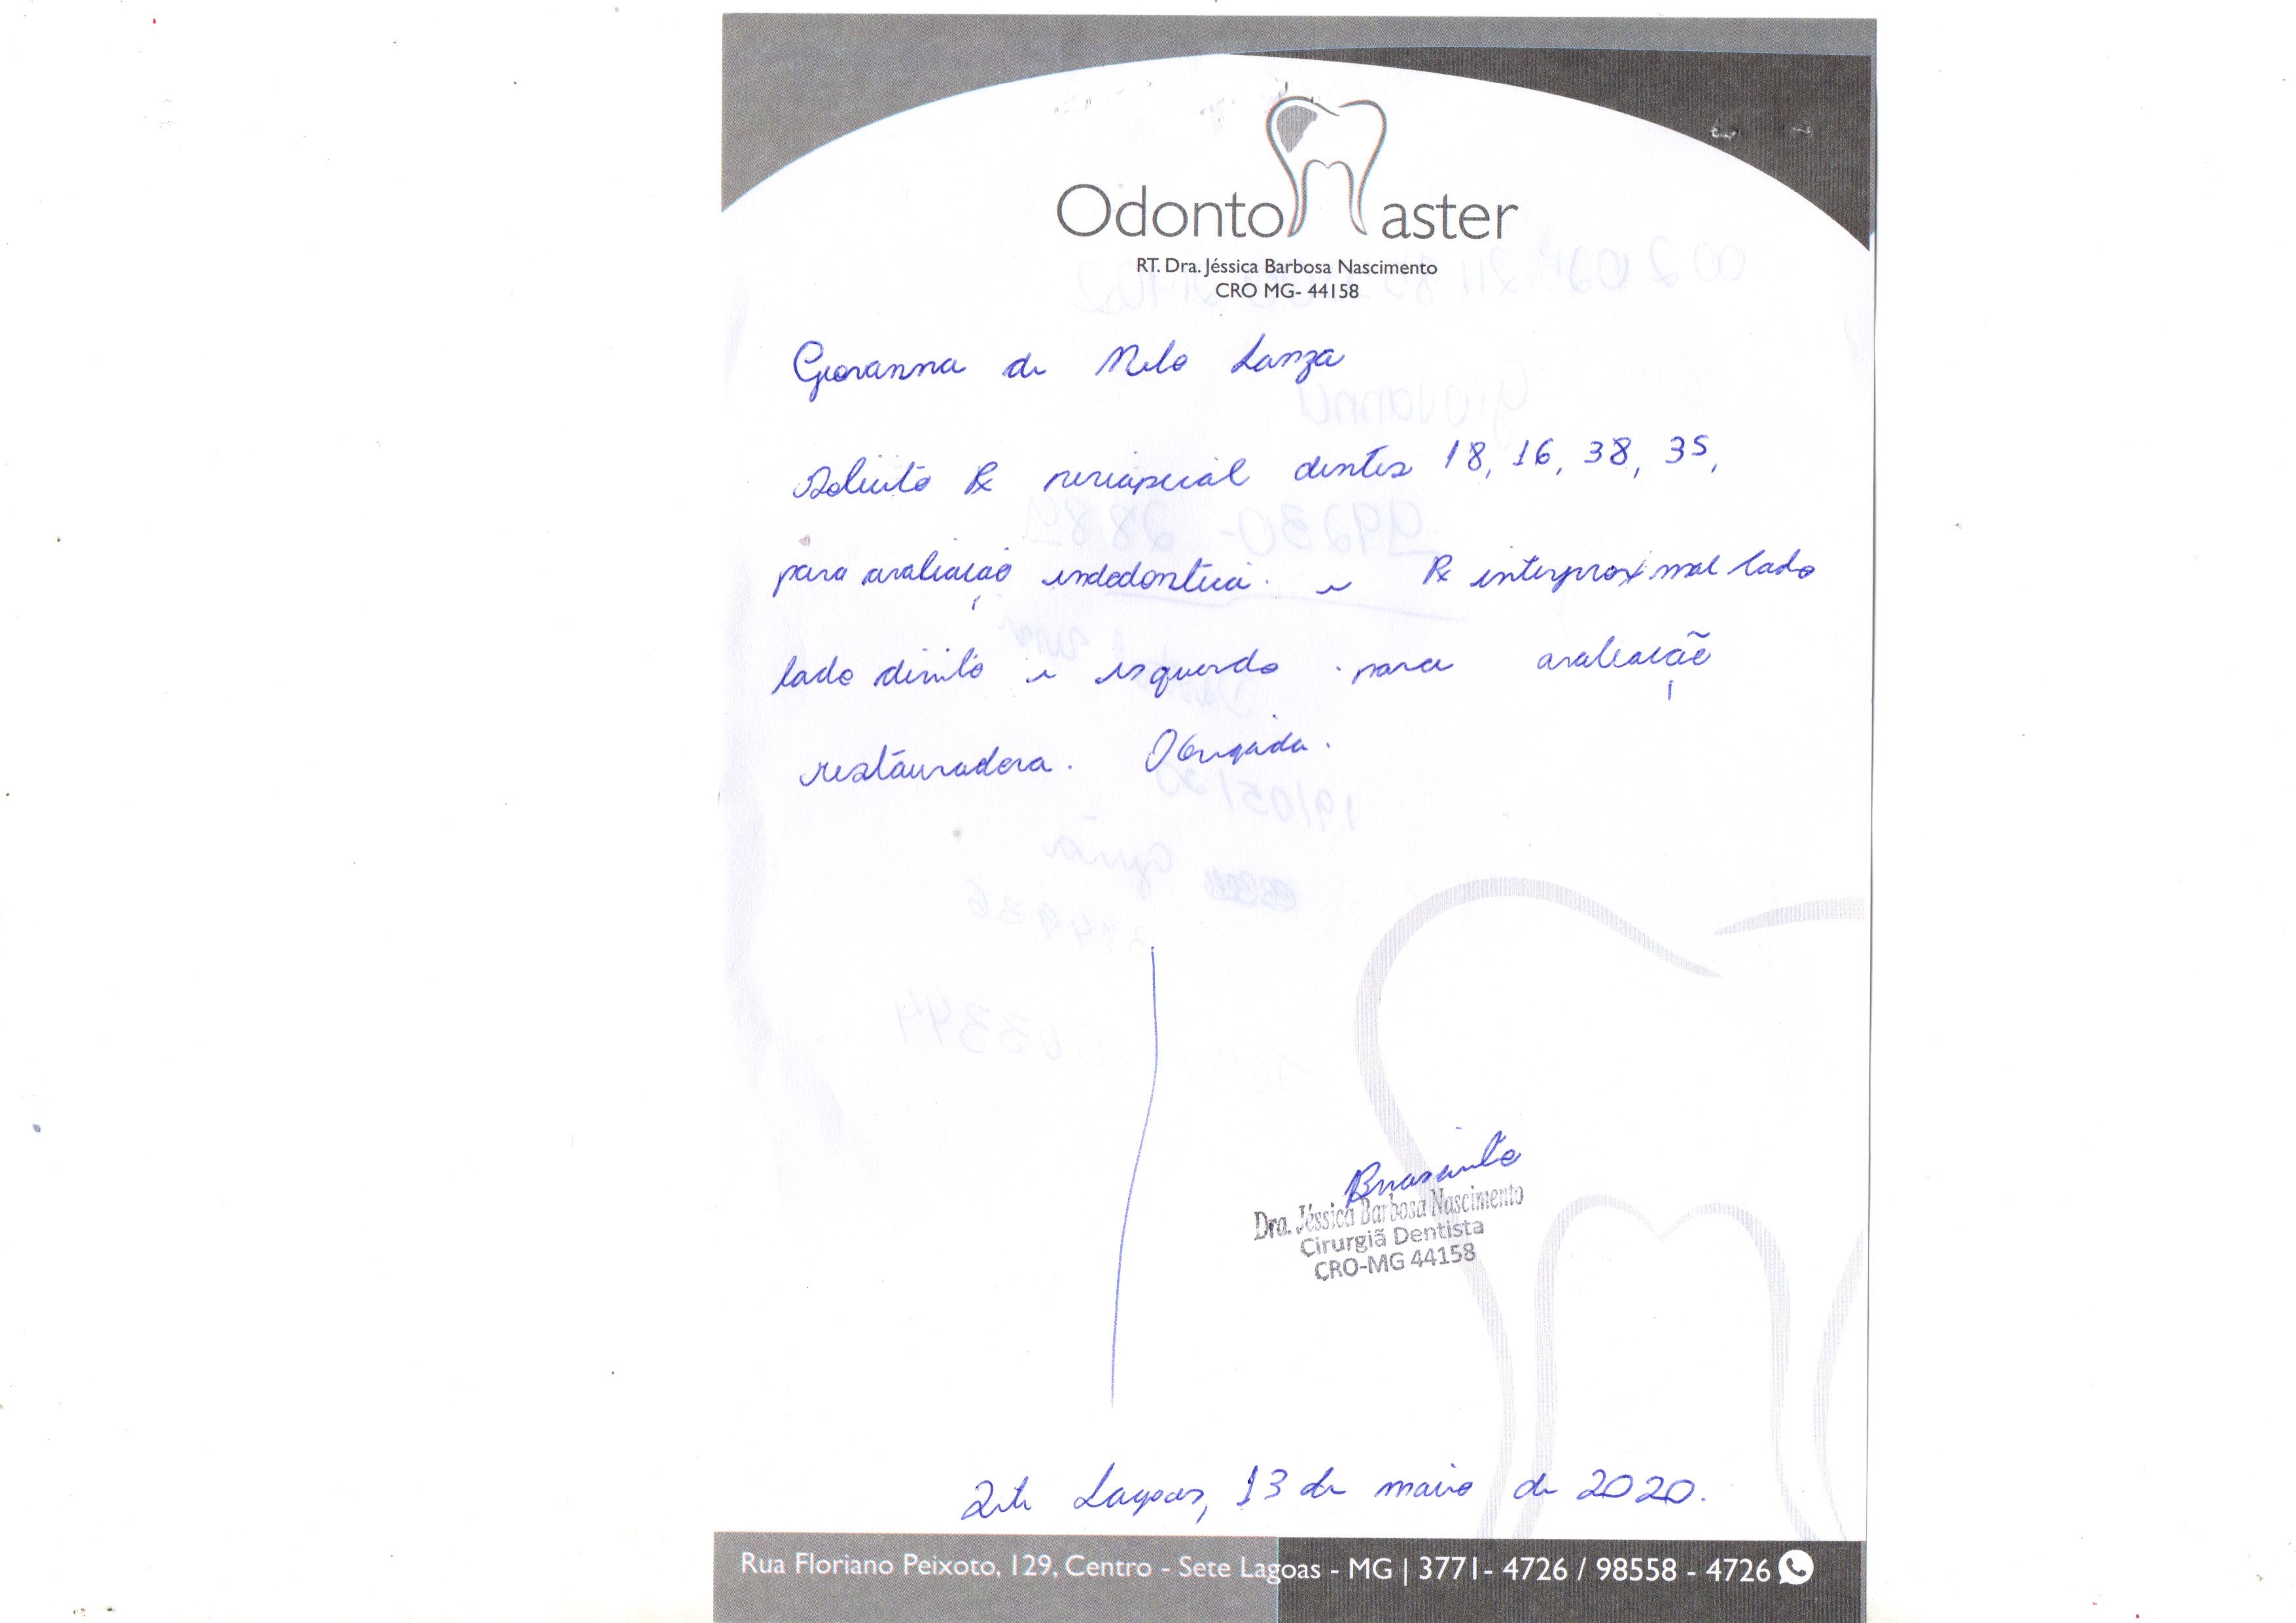 Odonto Master
RT. Dra. Jéssica Barbosa Nascimento
CRO MG- 44158
Giovanna de Melo Lanza
Solicito Rx periapical dentes 18, 16, 38, 35,
para avaliação endodontica. e Rx interproximal lado
lado direito e esquerdo para avaliação
restauradora. Obrigada.
BNascimento
Dra. Jéssica Barbosa Nascimento
Cirurgiã Dentista
CRO-MG 44158
Sete Lagoas, 13 de maio de 2020.
Rua Floriano Peixoto, 129, Centro - Sete Lagoas - MG | 3771- 4726 / 98558 - 4726